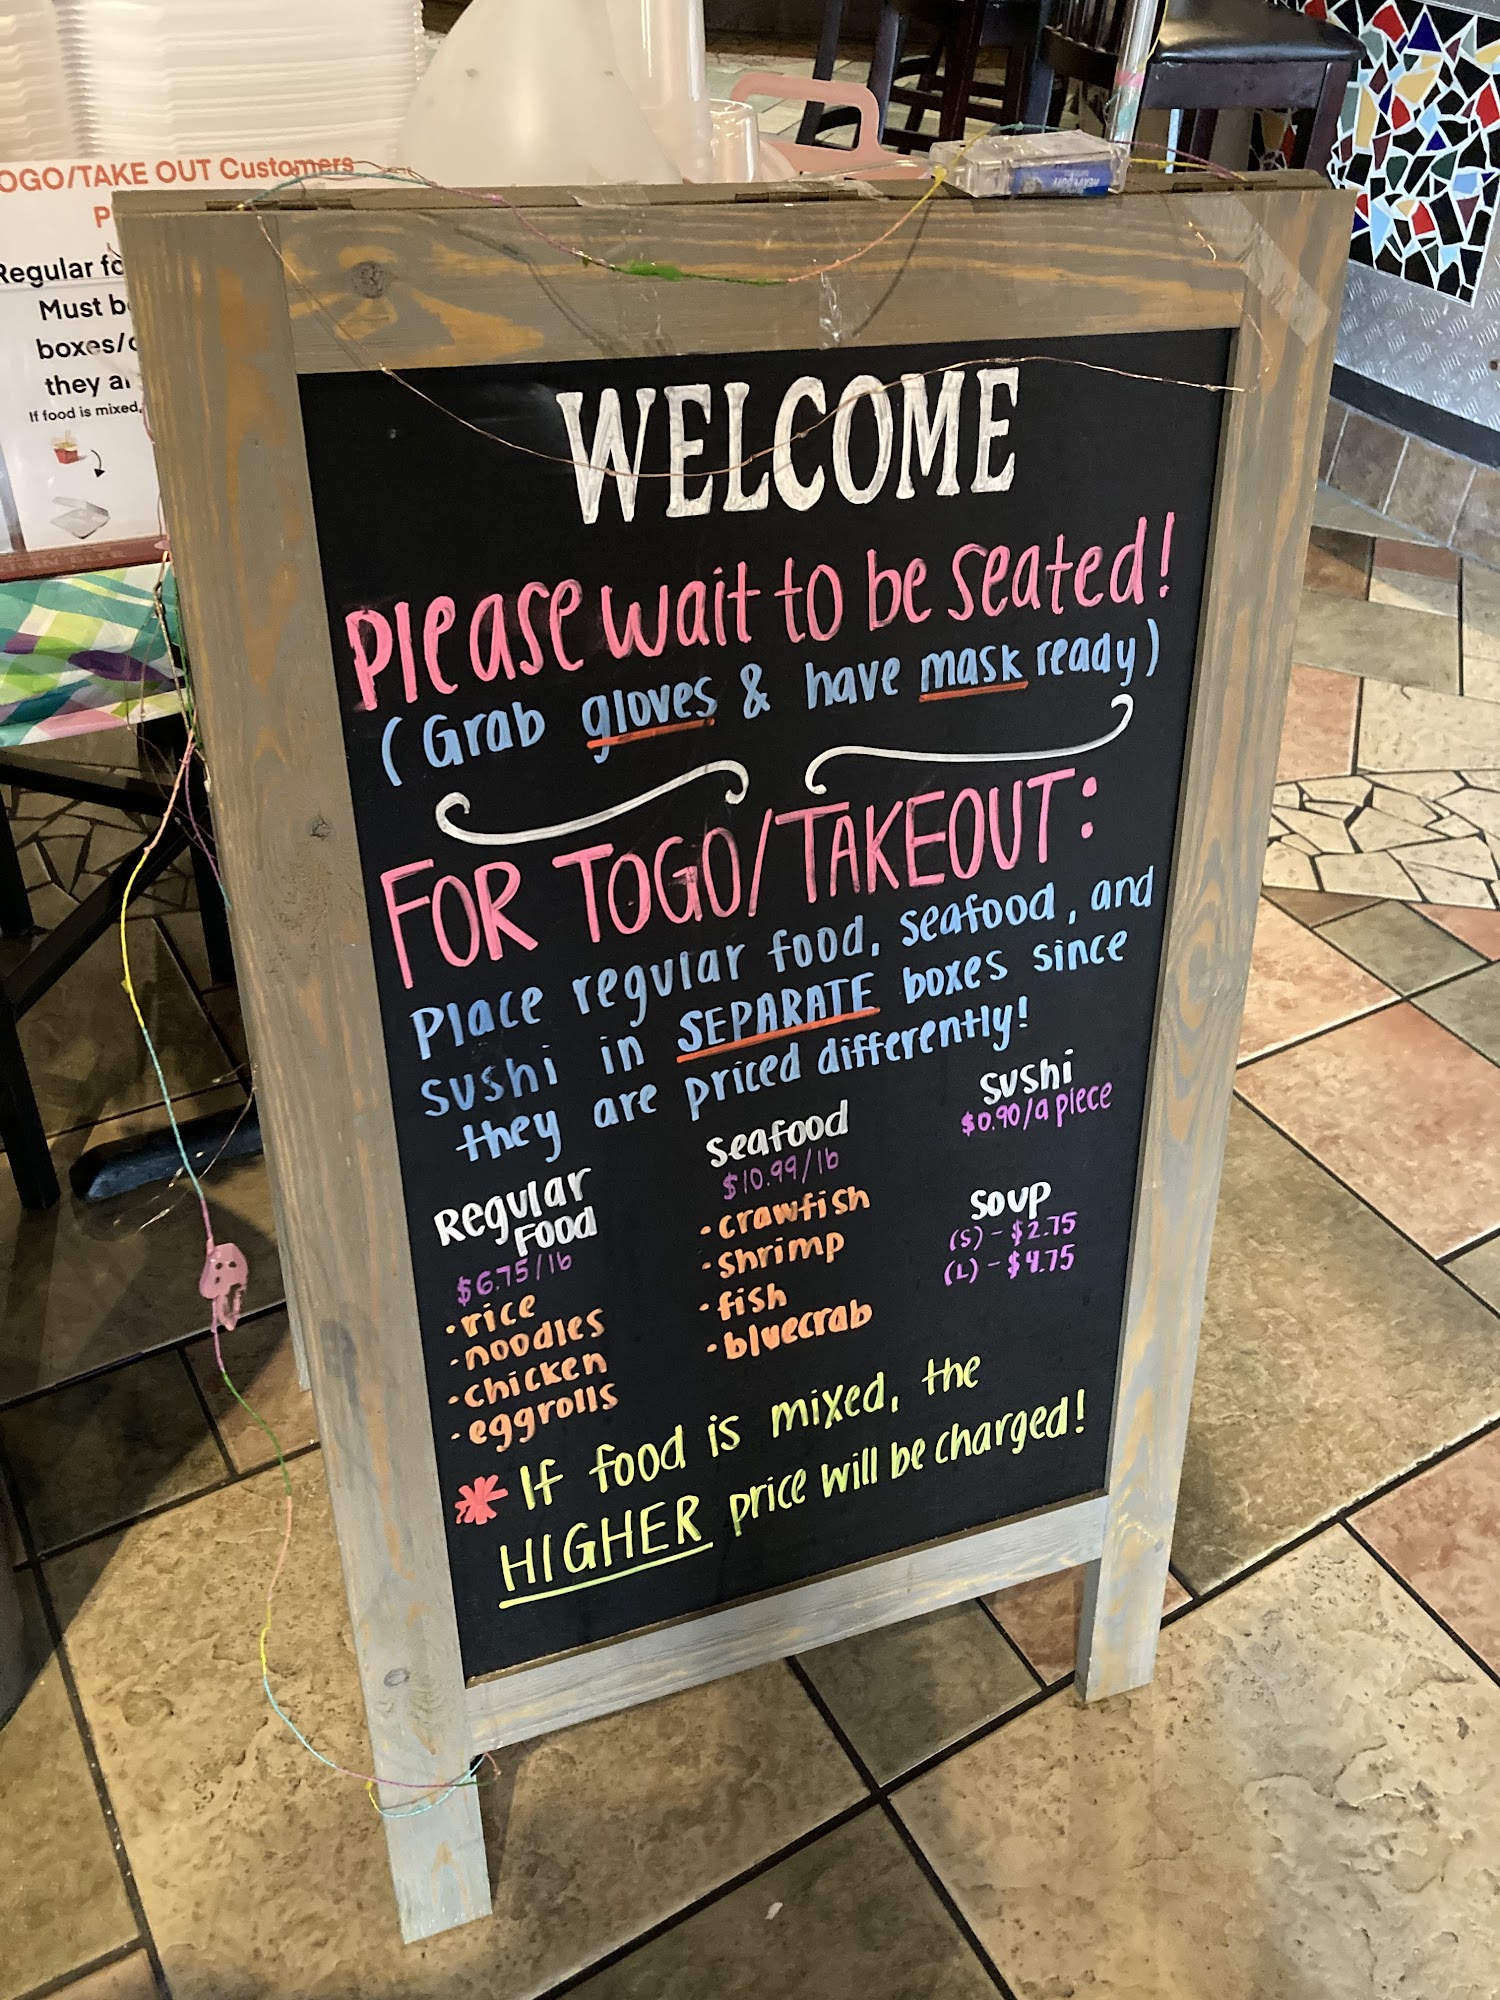 OGO/TAKE OUT Customers
P
Regular fo
Must b
boxes/
they a
If food is mixed,
HEAVY DUTY
WELCOME
Please wait to be seated!
(Grab gloves & have mask ready)
FOR TOGO/TAKEOUT:
Place regular food, seafood, and
sushi in SEPARATE boxes since
they are priced differently!
Regular
Food
$6.75/lb
·rice
·noodles
·chicken
·eggrolls
Seafood
$10.99/lb
·crawfish
·shrimp
·fish
·bluecrab
Sushi
$0.90/a piece
Soup
(S) - $2.75
(L) - $4.75
* If food is mixed, the
HIGHER price will be charged!